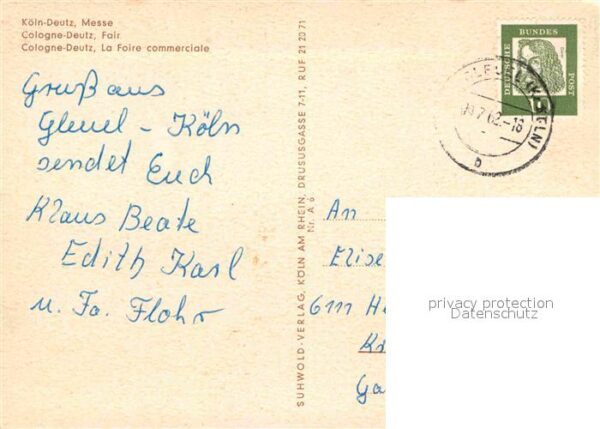 Köln-Deutz, Messe
Cologne-Deutz, Fair
Cologne-Deutz, La Foire commerciale
Gruß aus
Gleuel - Köln
sendet Euch
Klaus Beate
Edith Karl
u. Fa. Flohr
SUHWOLD-VERLAG, KÖLN AM RHEIN, DRUSUSGASSE 7-11, RUF 21 20 71
Nr. A 6
DEUTSCHE BUNDES POST
7 62.-18
b
An
Elise
6111
privacy protection
Datenschutz